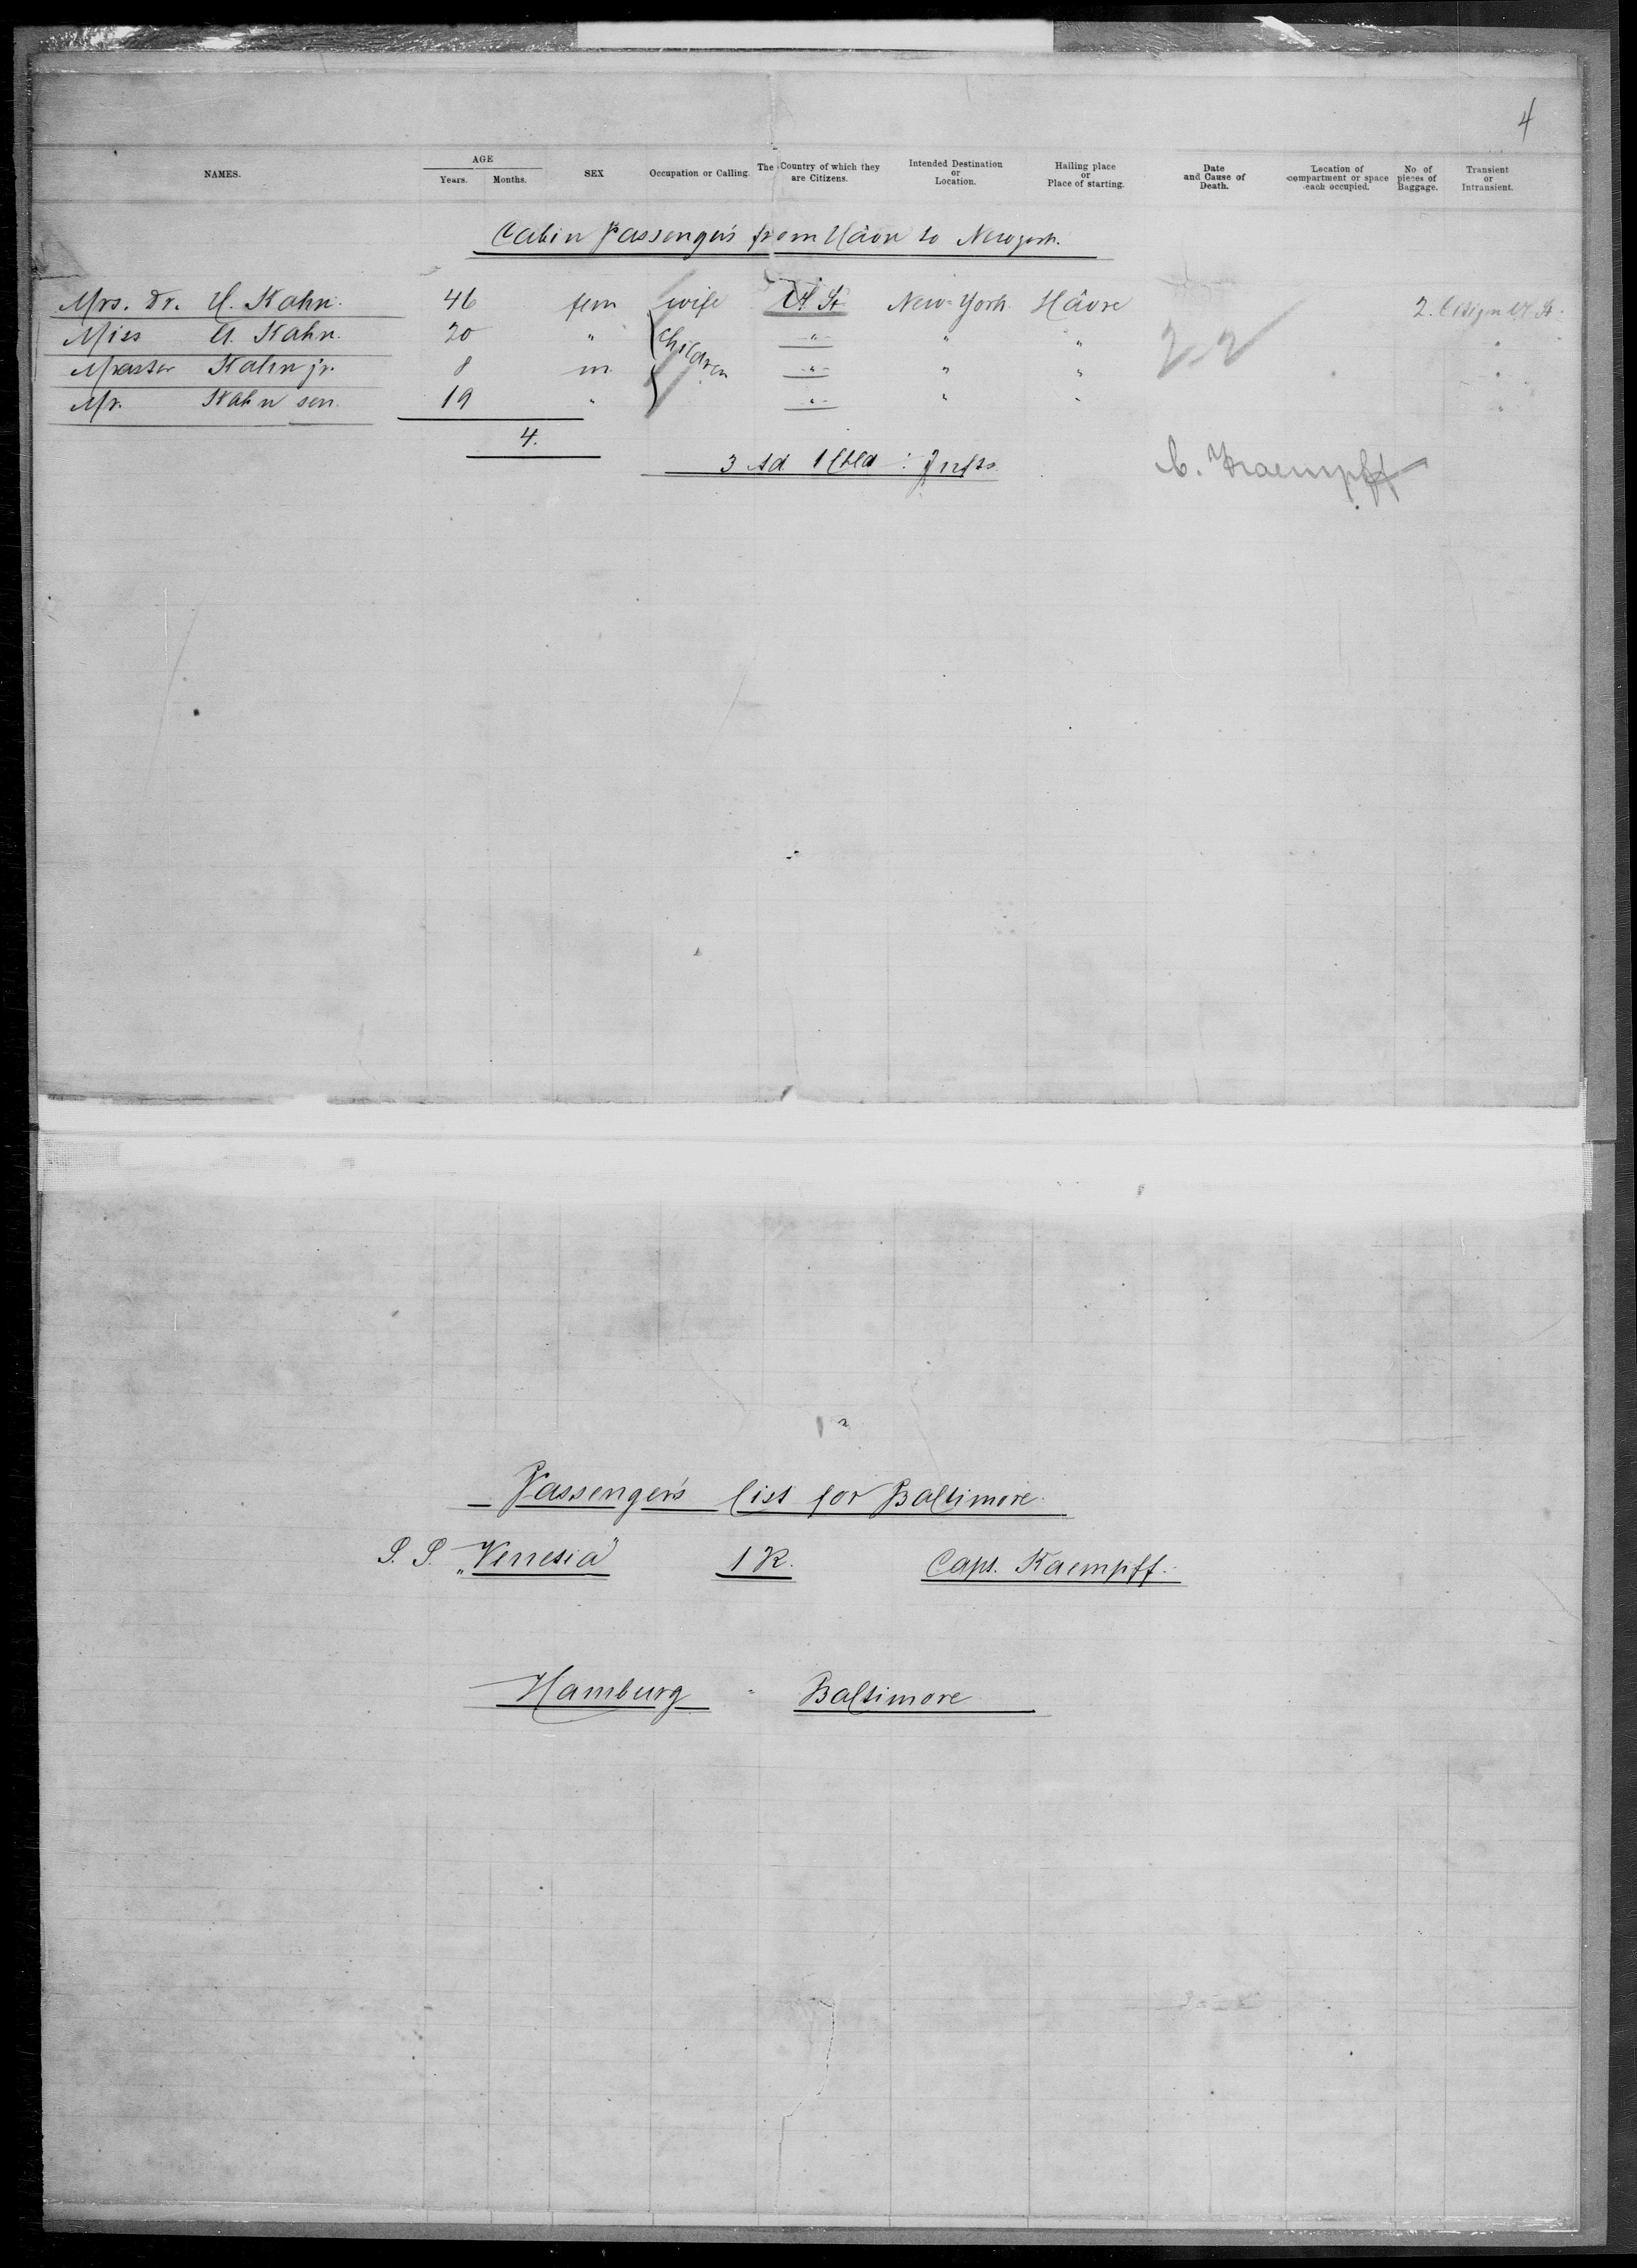 4
NAMES. AGE Years. Months. SEX Occupation or Calling. The Country of which they are Citizens. Intended Destination or Location. Hailing place or Place of starting. Date and Cause of Death. Location of compartment or space each occupied. No of pieces of Baggage. Transient or Intransient.
Cabin Passengers from Hâvre to New york.
Mrs. Dr. H. Kahn. 46 fem wife U St New-York Hâvre 2. Citizen U. St.
Miss Kahn. 20 " Children " " " "
Master Kahn jr. 8 m " " " "
Mr. Kahn sen. 19 " " " " "
2-2
4.
3 Ad 1 Chld
C. Kaempff
Passengers list for Baltimore.
S. S. „Venesia" 1 K. Capt. Kaempff.
Hamburg - Baltimore